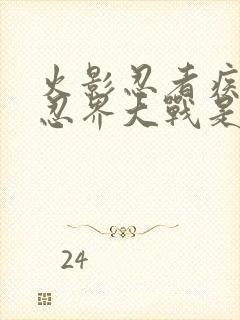 火影忍者疾
忍界大戰是
24